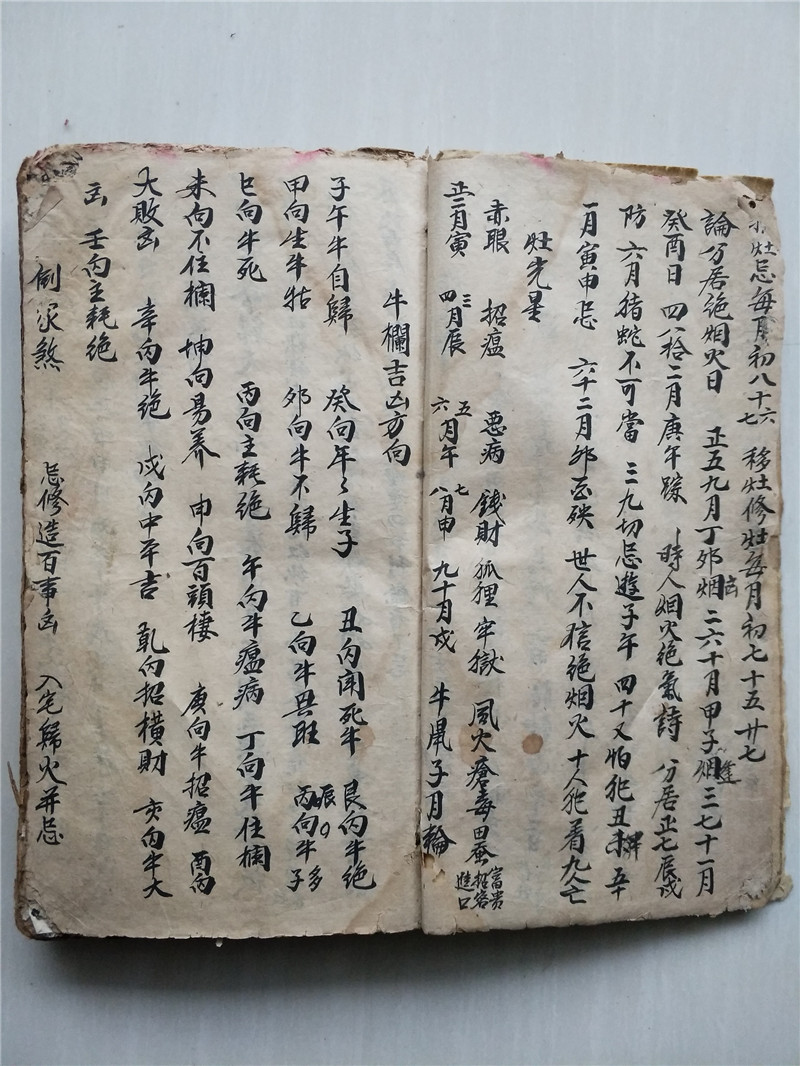 灶忌每月初八十六七 移灶修灶每月初七十五廿七
論分居絶烟火日 正五九月丁卯烟 二六十月甲子烟逢 三七十一月
癸酉日 四八拾二月庚午踪 時人烟火絶氣詩 分居正七辰戌
防 六月猪蛇不可當 三九切忌遊子午 四十又怕犯丑未 五十
一月寅申忌 六十二月卯酉殃 世人不信絶烟火 十人犯着九人亡
灶完星
赤眼 招瘟 惡病 錢財 狐狸 牢獄 風火 瘡毒 田蚕 富贵招客進口
正二月寅 三四月辰 五六月午 七八月申 九十月戌 牛凲子月輪
牛欄吉凶方向
子午牛自歸 癸向年々生子 丑向開死牛 艮向牛絶
甲向生牛牯 卯向牛不歸 乙向牛興旺 辰 丙向牛多子
巳向牛死 丙向主耗絶 午向牛瘟病 丁向牛住欄
未向不住欄 坤向易养 申向百頭棲 庚向牛招瘟 酉向
大敗凶 辛向牛絶 戌向中平吉 乾向招橫財 亥向牛大
凶 壬向主耗絶
倒家煞 忌修造百事凶 入宅歸火并忌